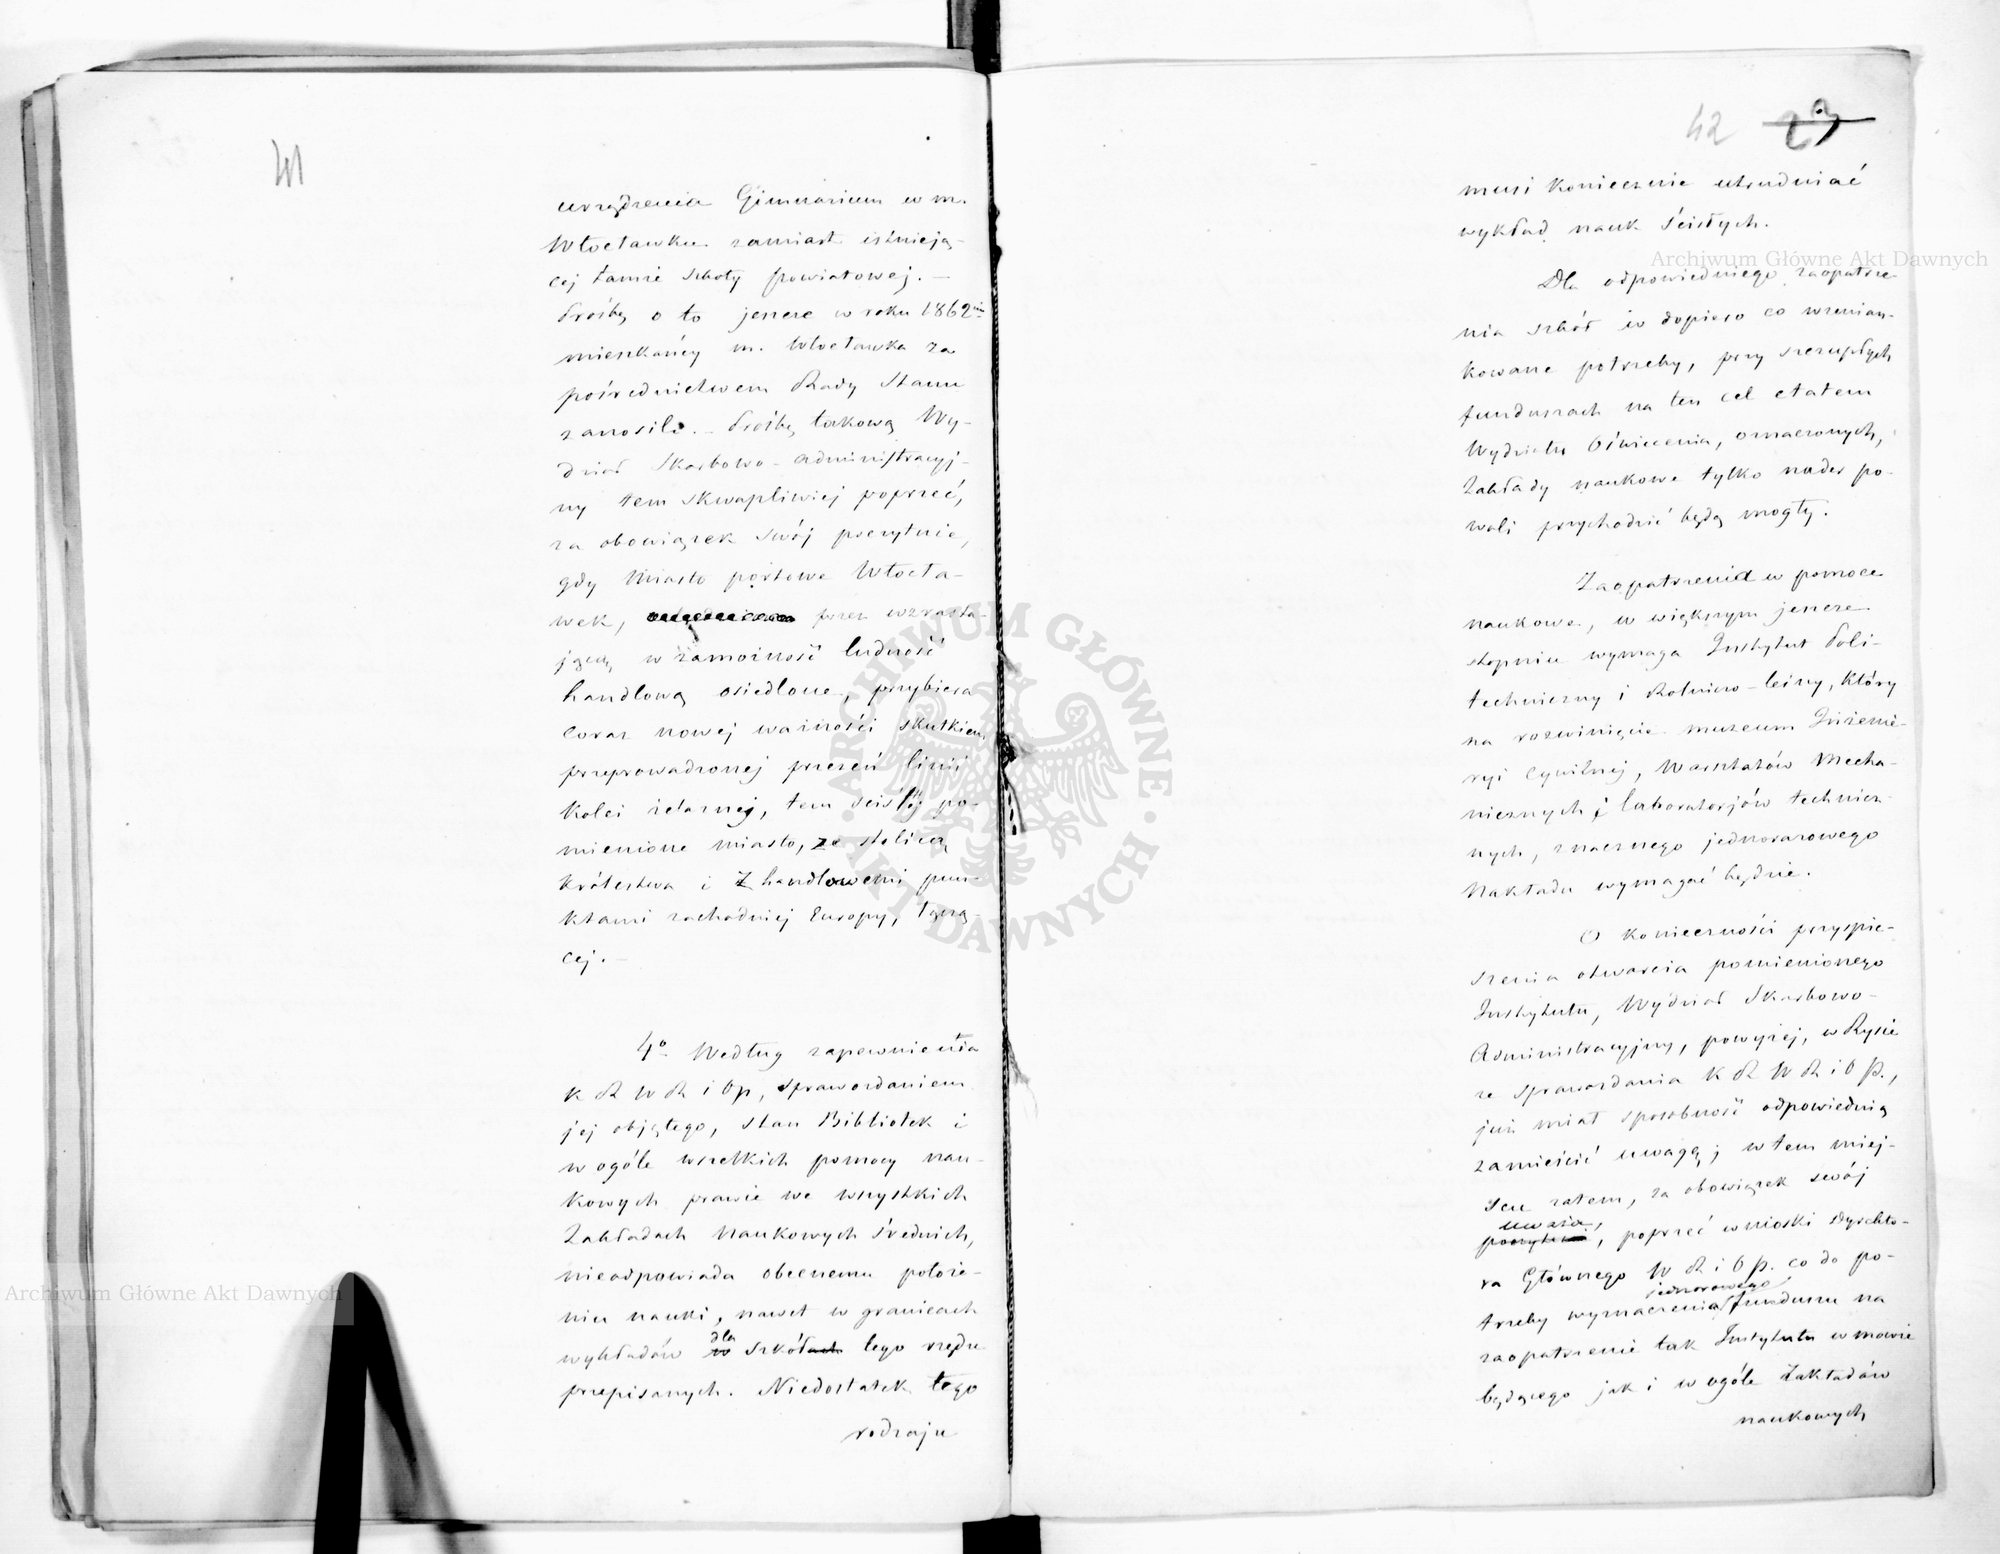 41
urządzenia Gimnazium w m.
Włocławku zamiast istnieją-
cej tamże szkoły powiatowej. –
Prośbę o to jeszcze w roku 1862im
mieszkańcy m. Włocławka za
pośrednictwem Rady Stanu
zanosili. – Prośbę takową Wy-
dział Skarbowo-Administracyj-
ny tem skwapliwiej poprzeć,
za obowiązek swój poczytuje,
gdy Miasto portowe Włocła-
wek, przez wzrasta-
jącą w zamożność ludność
handlową osiedlone, przybiera
coraz nowej ważności skutkiem
przeprowadzonej przezeń linii
Kolei żelaznej, tem ściślej po-
mienione miasto, ze stolicą
Królestwa i z handlowemi pun-
ktami zachodniej Europy, łączą-
cej. –
4o Według zapewnienia
K R W R i Op, sprawozdaniem
jej objętego, stan Bibliotek i
w ogóle wszelkich pomocy nau-
kowych prawie we wszystkich
Zakładach Naukowych średnich,
nieodpowiada obecnemu położe-
niu nauki, nawet w granicach
dla
wykładów w szkółach tego rzędu
przepisanych. Niedostatek tego
rodzaju
42 23
musi koniecznie utrudniać
wykład nauk ścisłych.
Dla odpowiedniego zaopatrze
nia szkół w dopiero co wzmian-
kowane potrzeby, przy szczupłych
funduszach na ten cel etatem
Wydziału Oświecenia, oznaczonych,
Zakłady naukowe tylko nader po-
woli przychodzić będą mogły.
Zaopatrzenia w pomoce
naukowe, w większym jeszcze
stopniu wymaga Instytut Poli-
techniczny i Rolniczo-leśny, który
na rozwinięcie muzeum Inżenie-
ryi Cywilnej, Warsztatów Mecha-
nicznych i laboratorjów technicz-
nych, znacznego jednorazowego
Nakładu wymagać będzie.
O konieczności przyspie-
szenia otwarcia pomienionego
Instytutu, Wydział Skarbowo-
Administracyjny, powyżej, w Rysie
ze sprawozdania K R W R i O P.,
już miał sposobność odpowiednią
zamieścić uwagę; w tem miej-
scu zatem, za obowiązek swój
uważa,
poczytuje, poprzeć wnioski Dyrekto-
ra Głównego W R i O P. co do po-
jednorazowego
trzeby wyznaczenia funduszu na
zaopatrzenie tak Instytutu w mowie
będącego jak i w ogóle Zakładów
naukowych
Archiwum Główne Akt Dawnych
Archiwum Główne Akt Dawnych
ARCHIWUM GŁÓWNE · AKT DAWNYCH ·